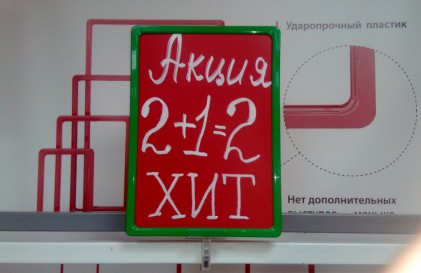 Ударопрочный пластик
Акция
2+1=2
ХИТ
Нет дополнительных